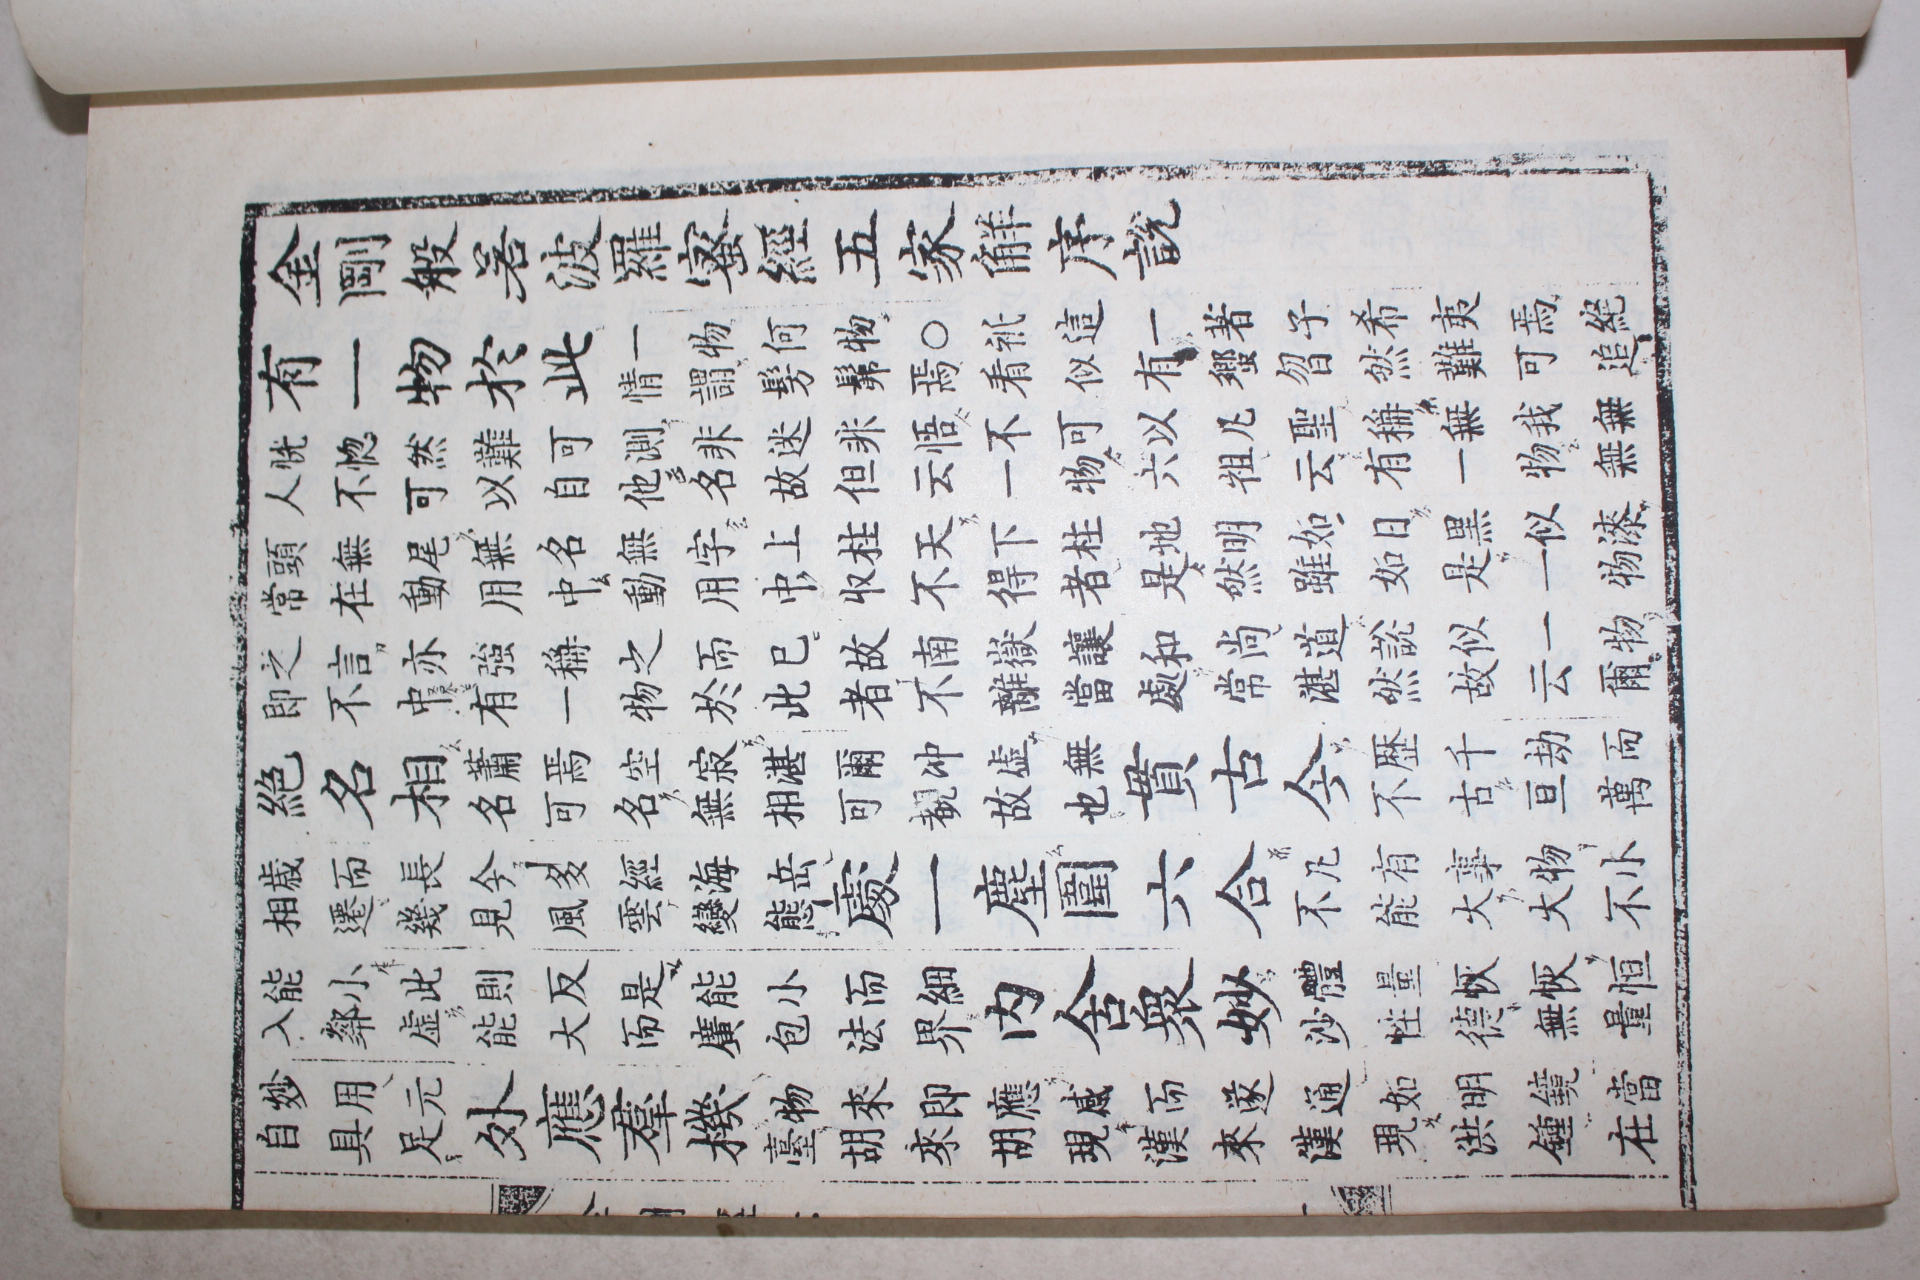 金剛般若波羅蜜經五家解序說
有一物於此
一物何物○祇這一著子希夷焉絕
情謂髣髴焉看似有蠁曶然難可追
恍惚然難可測非迷非悟不可以凡聖稱無我無
人不可以自他名故但云一物六祖云有一物無
頭無尾無名無字上柱天下柱地明如日黑似漆
常在動用中動用中收不得者是然雖如是一物
之言亦強稱之而已故南嶽讓和尚道說似一物
即不中有一物於此者不離當處常湛然故云爾
絕名相
蕭焉空寂湛爾冲虛無
名可名無相可覩故也
貫古今
歷千劫而
不古亘萬
歲而長今多經海岳
相遷幾見風雲變態
處一塵圍六合
凡有事物小
不能大大不
能小此則反是能小而細
入鄰虛能大而廣包法界
內含衆妙
體量恢恢恒
沙性德無量
妙用元
自具足
外應羣機
物來即應感而遂通如明鏡當
臺胡來胡現漢來漢現洪鍾在